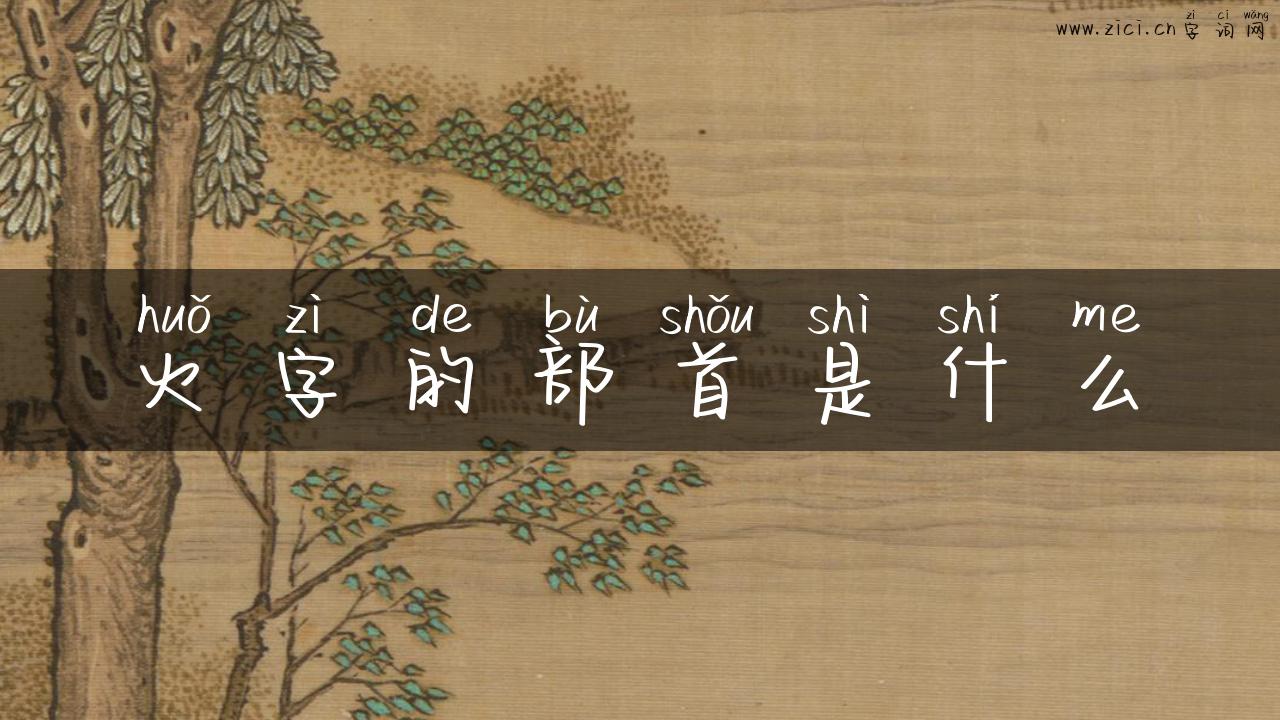 zì cí wǎng
www.zici.cn 字词网
huǒ zì de bù shǒu shì shí me
火字的部首是什么